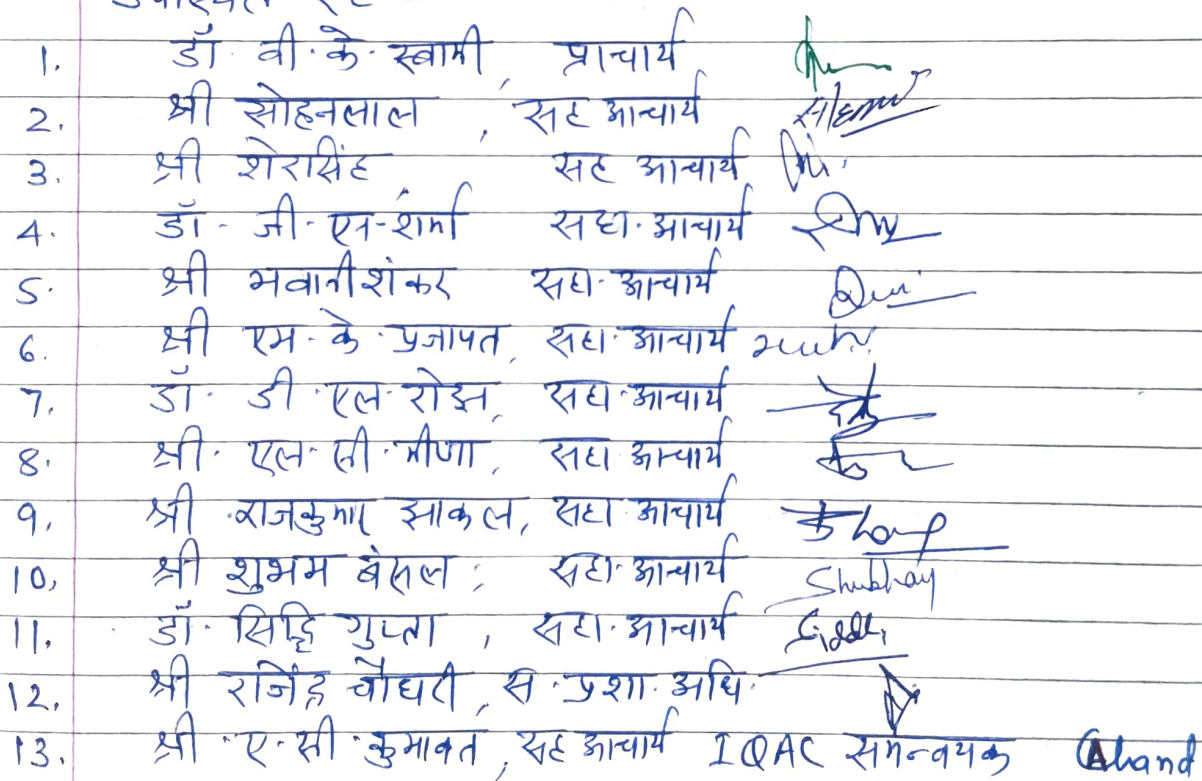 1. डॉ. वी. के. स्वामी, प्राचार्य
2. श्री सोहनलाल, सह आचार्य
3. श्री शेरसिंह, सह आचार्य
4. डॉ. जी. एन. शर्मा सहा. आचार्य
5. श्री भवानीशंकर सहा. आचार्य
6. श्री एम. के. प्रजापत, सहा. आचार्य
7. डॉ. डी. एल. रोझ, सहा. आचार्य
8. श्री. एल. सी. मीणा, सहा आचार्य
9. श्री राजकुमार झाकल, सहा आचार्य
10, श्री शुभम बंसल, सहा. आचार्य Shubham
11. डॉ. सिद्धि गुप्ता, सहा. आचार्य Siddhi
12. श्री राजेंद्र चौधरी, स. प्रशा. अधि.
13. श्री ए. सी. कुमावत, सह आचार्य IQAC समन्वयक